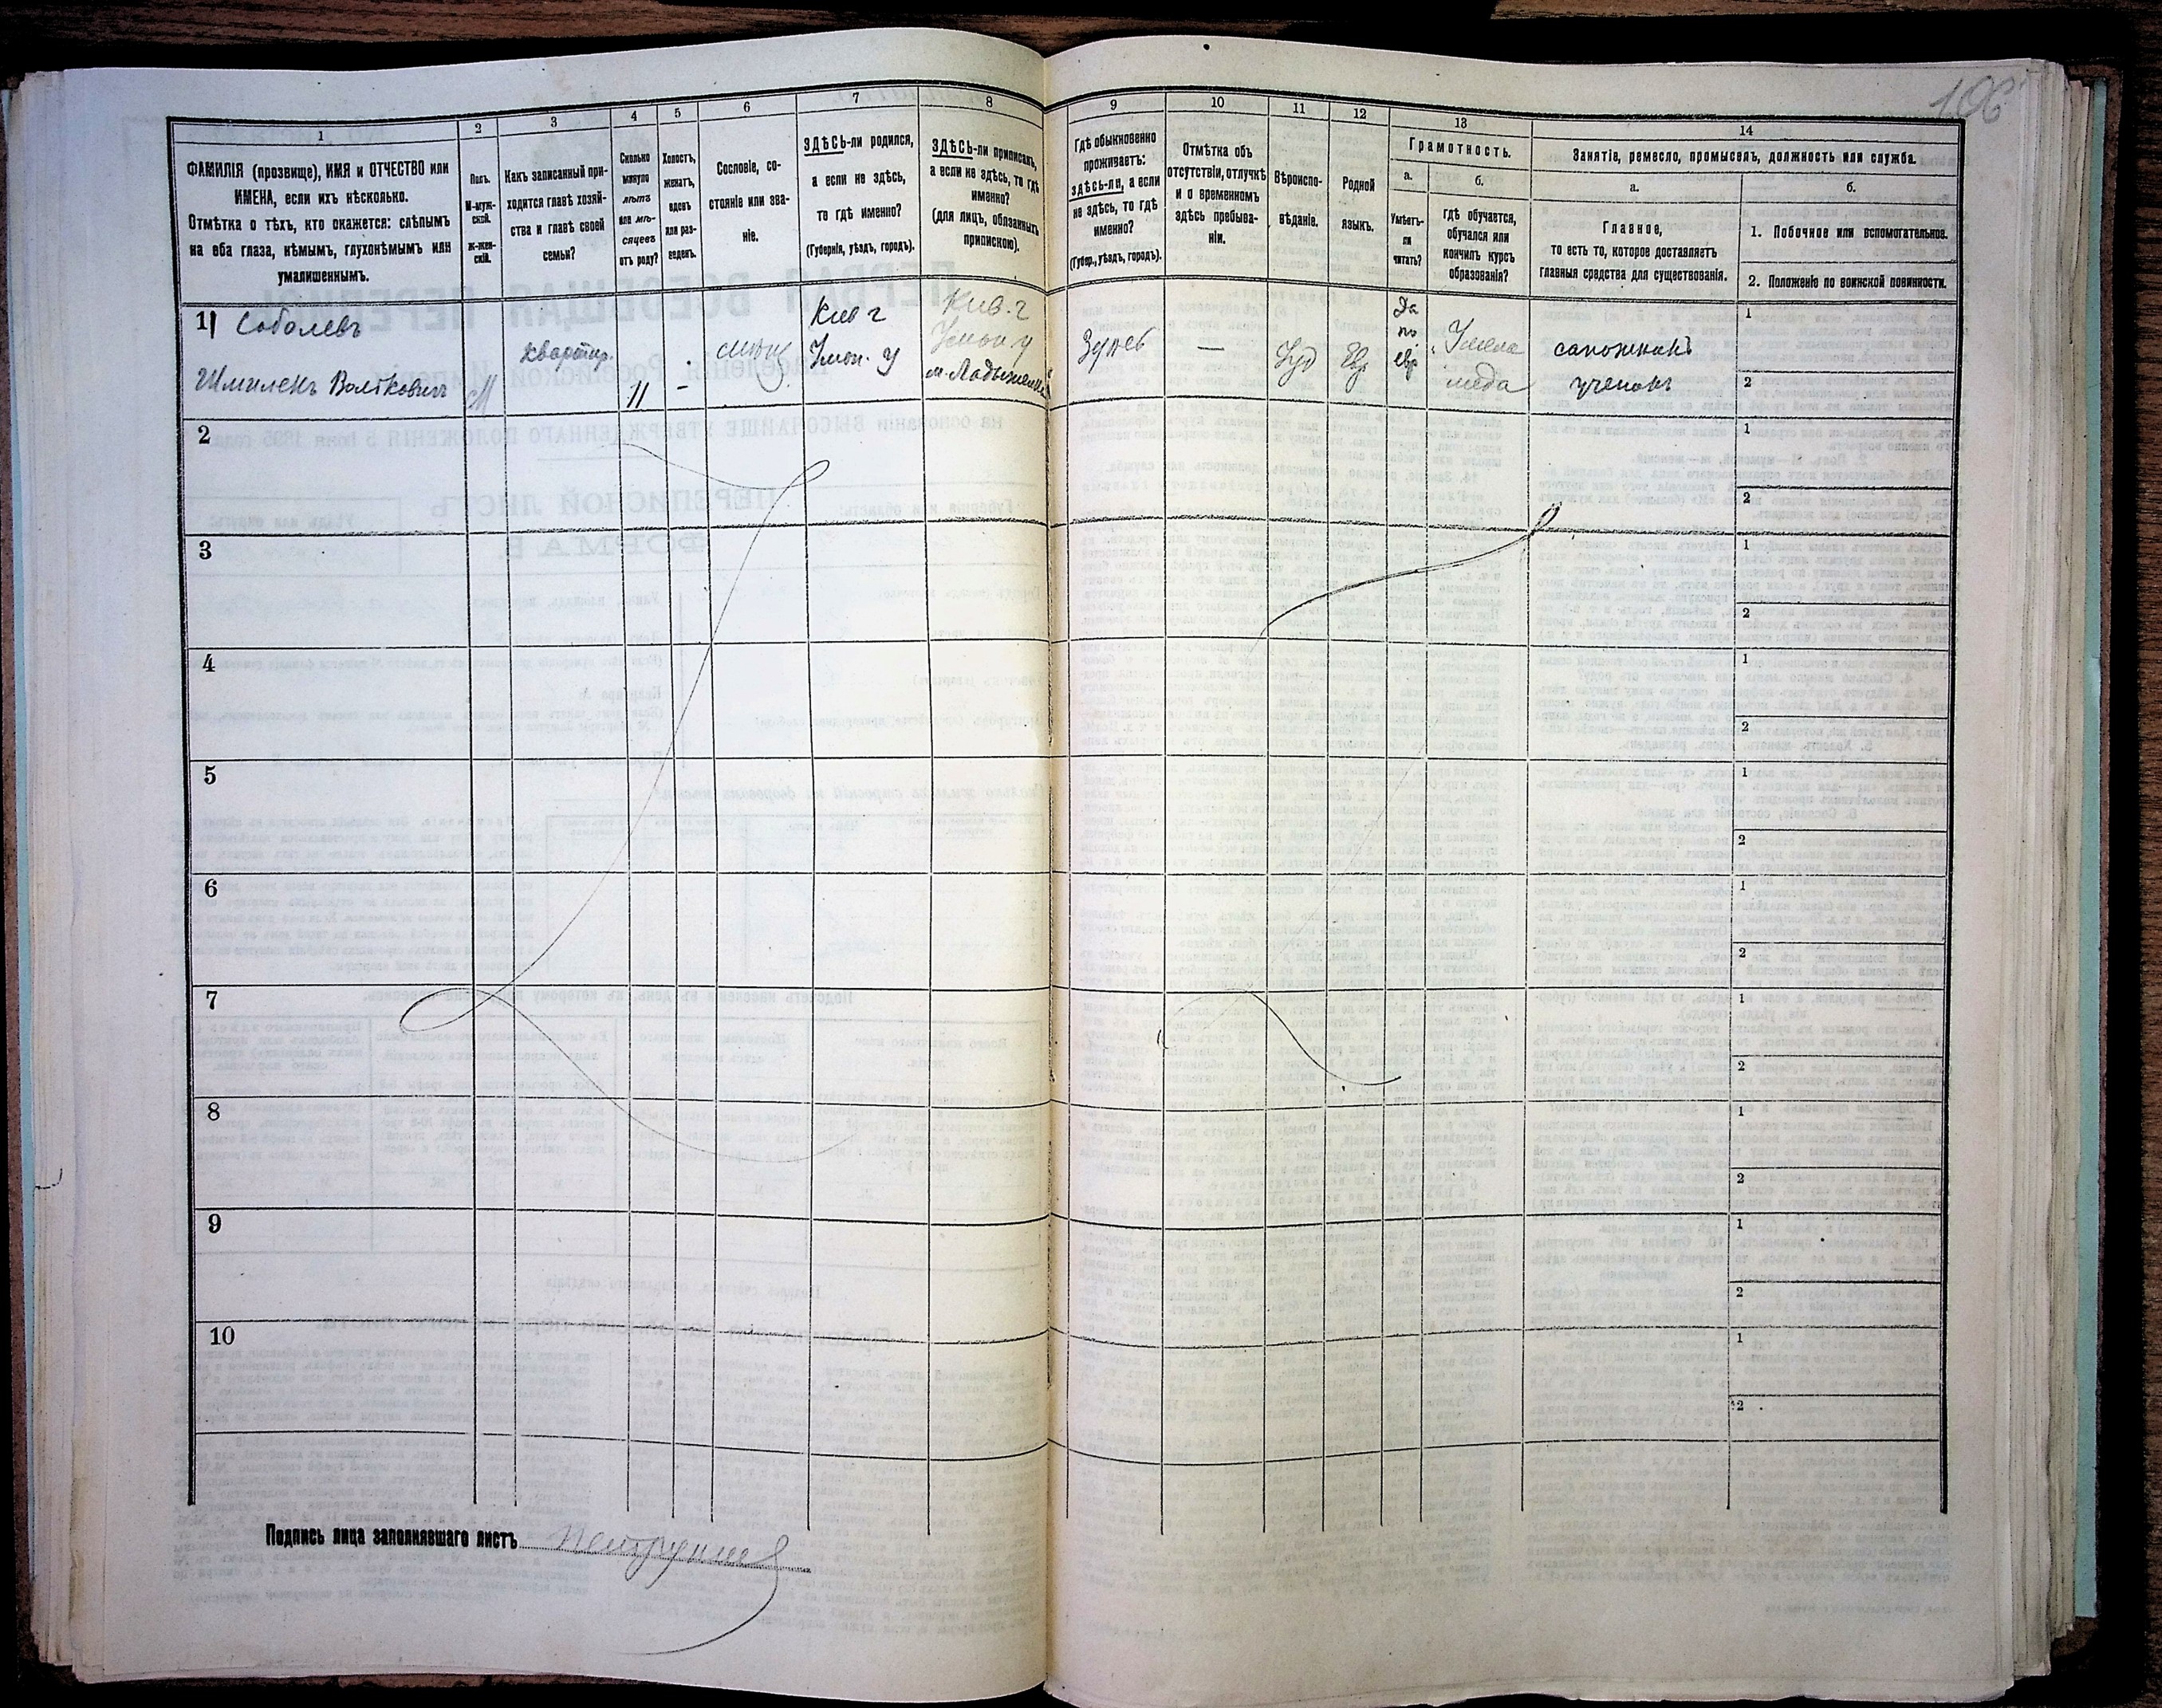 106
1
ФАМИЛІЯ (прозвище), ИМЯ и ОТЧЕСТВО или
ИМЕНА, если ихъ нѣсколько.
Отмѣтка о тѣхъ, кто окажется: слѣпымъ
на оба глаза, нѣмымъ, глухонѣмымъ или
умалишеннымъ.
2
Полъ.
М-муж-
ской.
ж-жен-
скій.
3
Какъ записанный при-
ходится главѣ хозяй-
ства и главѣ своей
семьи?
4
Сколько
минуло
лѣтъ
или мѣ-
сяцевъ
отъ роду?
5
Холостъ,
женатъ,
вдовъ
или раз-
веденъ.
6
Сословіе, со-
стояніе или зва-
ніе.
7
ЗДѢСЬ-ли родился,
а если не здѣсь,
то гдѣ именно?
(Губернія, уѣздъ, городъ).
8
ЗДѢСЬ-ли приписанъ,
а если не здѣсь, то гдѣ
именно?
(для лицъ, обязанныхъ
припискою).
9
Гдѣ обыкновенно
проживаетъ:
здѣсь-ли, а если
не здѣсь, то гдѣ
именно?
(Губер., уѣздъ, городъ).
10
Отмѣтка объ
отсутствіи, отлучкѣ
и о временномъ
здѣсь пребыва-
ніи.
11
Вѣроиспо-
вѣданіе.
12
Родной
языкъ.
13
Грамотность.
а.
Умѣетъ-
ли
читать?
б.
гдѣ обучается,
обучался или
кончилъ курсъ
образованія?
14
Занятіе, ремесло, промыселъ, должность или служба.
а.
Главное,
то есть то, которое доставляетъ
главныя средства для существованія.
б.
1. Побочное или вспомогательное.
2. Положеніе по воинской повинности.
1 Соболевъ
Шмилекъ Волковичъ
М
квартир.
11
-
Кив г
Умон. у
Кив. г
Умон у
—
Іуд
Евр
Да
по
евр
У мела
меда
сапожникъ
ученик
1
2
2
1
2
3
1
2
4
1
2
5
1
2
6
1
2
7
1
2
8
1
2
9
1
2
10
1
2
Подпись лица заполнявшаго листъ